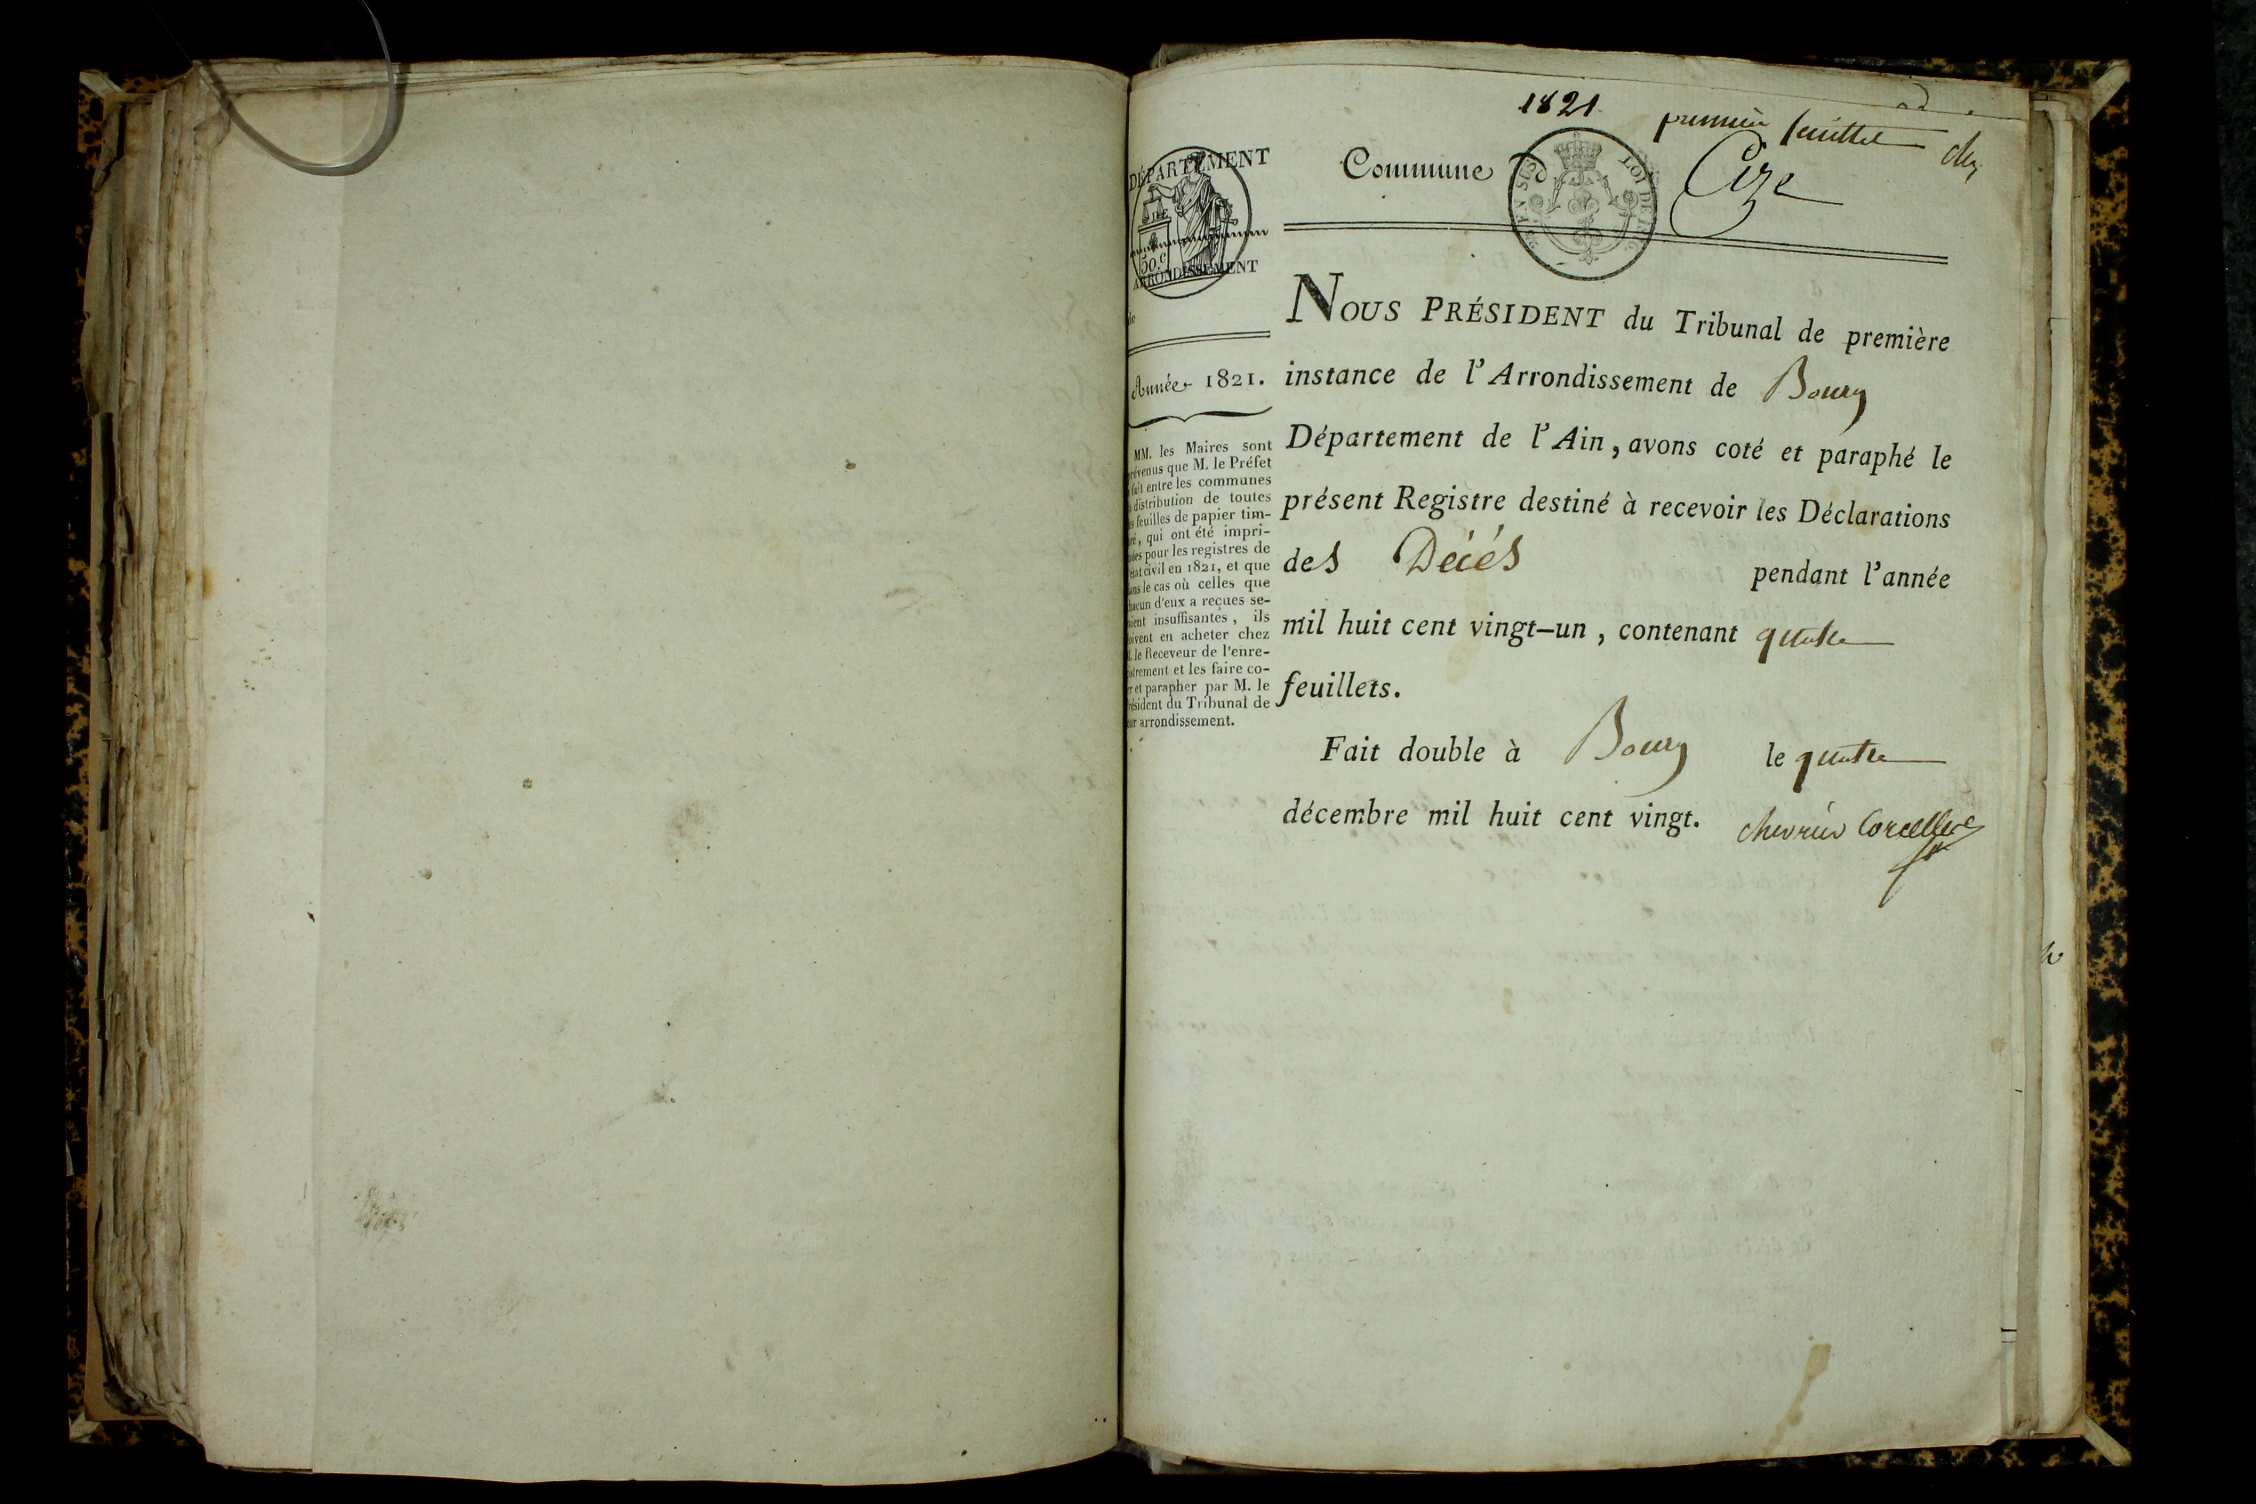 1821
première feuillet
Commune d Cize
DÉPARTEMENT
DE
50 c
ARRONDISSEMENT
de
Année 1821.
MM. les Maires sont
prévenus que M. le Préfet
a fait entre les communes
la distribution de toutes
les feuilles de papier tim-
bré, qui ont été impri-
mées pour les registres de
l'état civil en 1821, et que
dans le cas où celles que
chacun d'eux a reçues se-
roient insuffisantes, ils
doivent en acheter chez
M. le Receveur de l'enre-
gistrement et les faire co-
ter et parapher par M. le
Président du Tribunal de
leur arrondissement.
NOUS PRÉSIDENT du Tribunal de première
instance de l'Arrondissement de Bourg
Département de l'Ain, avons coté et paraphé le
présent Registre destiné à recevoir les Déclarations
des Décés pendant l'année
mil huit cent vingt-un, contenant quatre
feuillets.
Fait double à Bourg le quatre
décembre mil huit cent vingt.
chevrier Corcelles